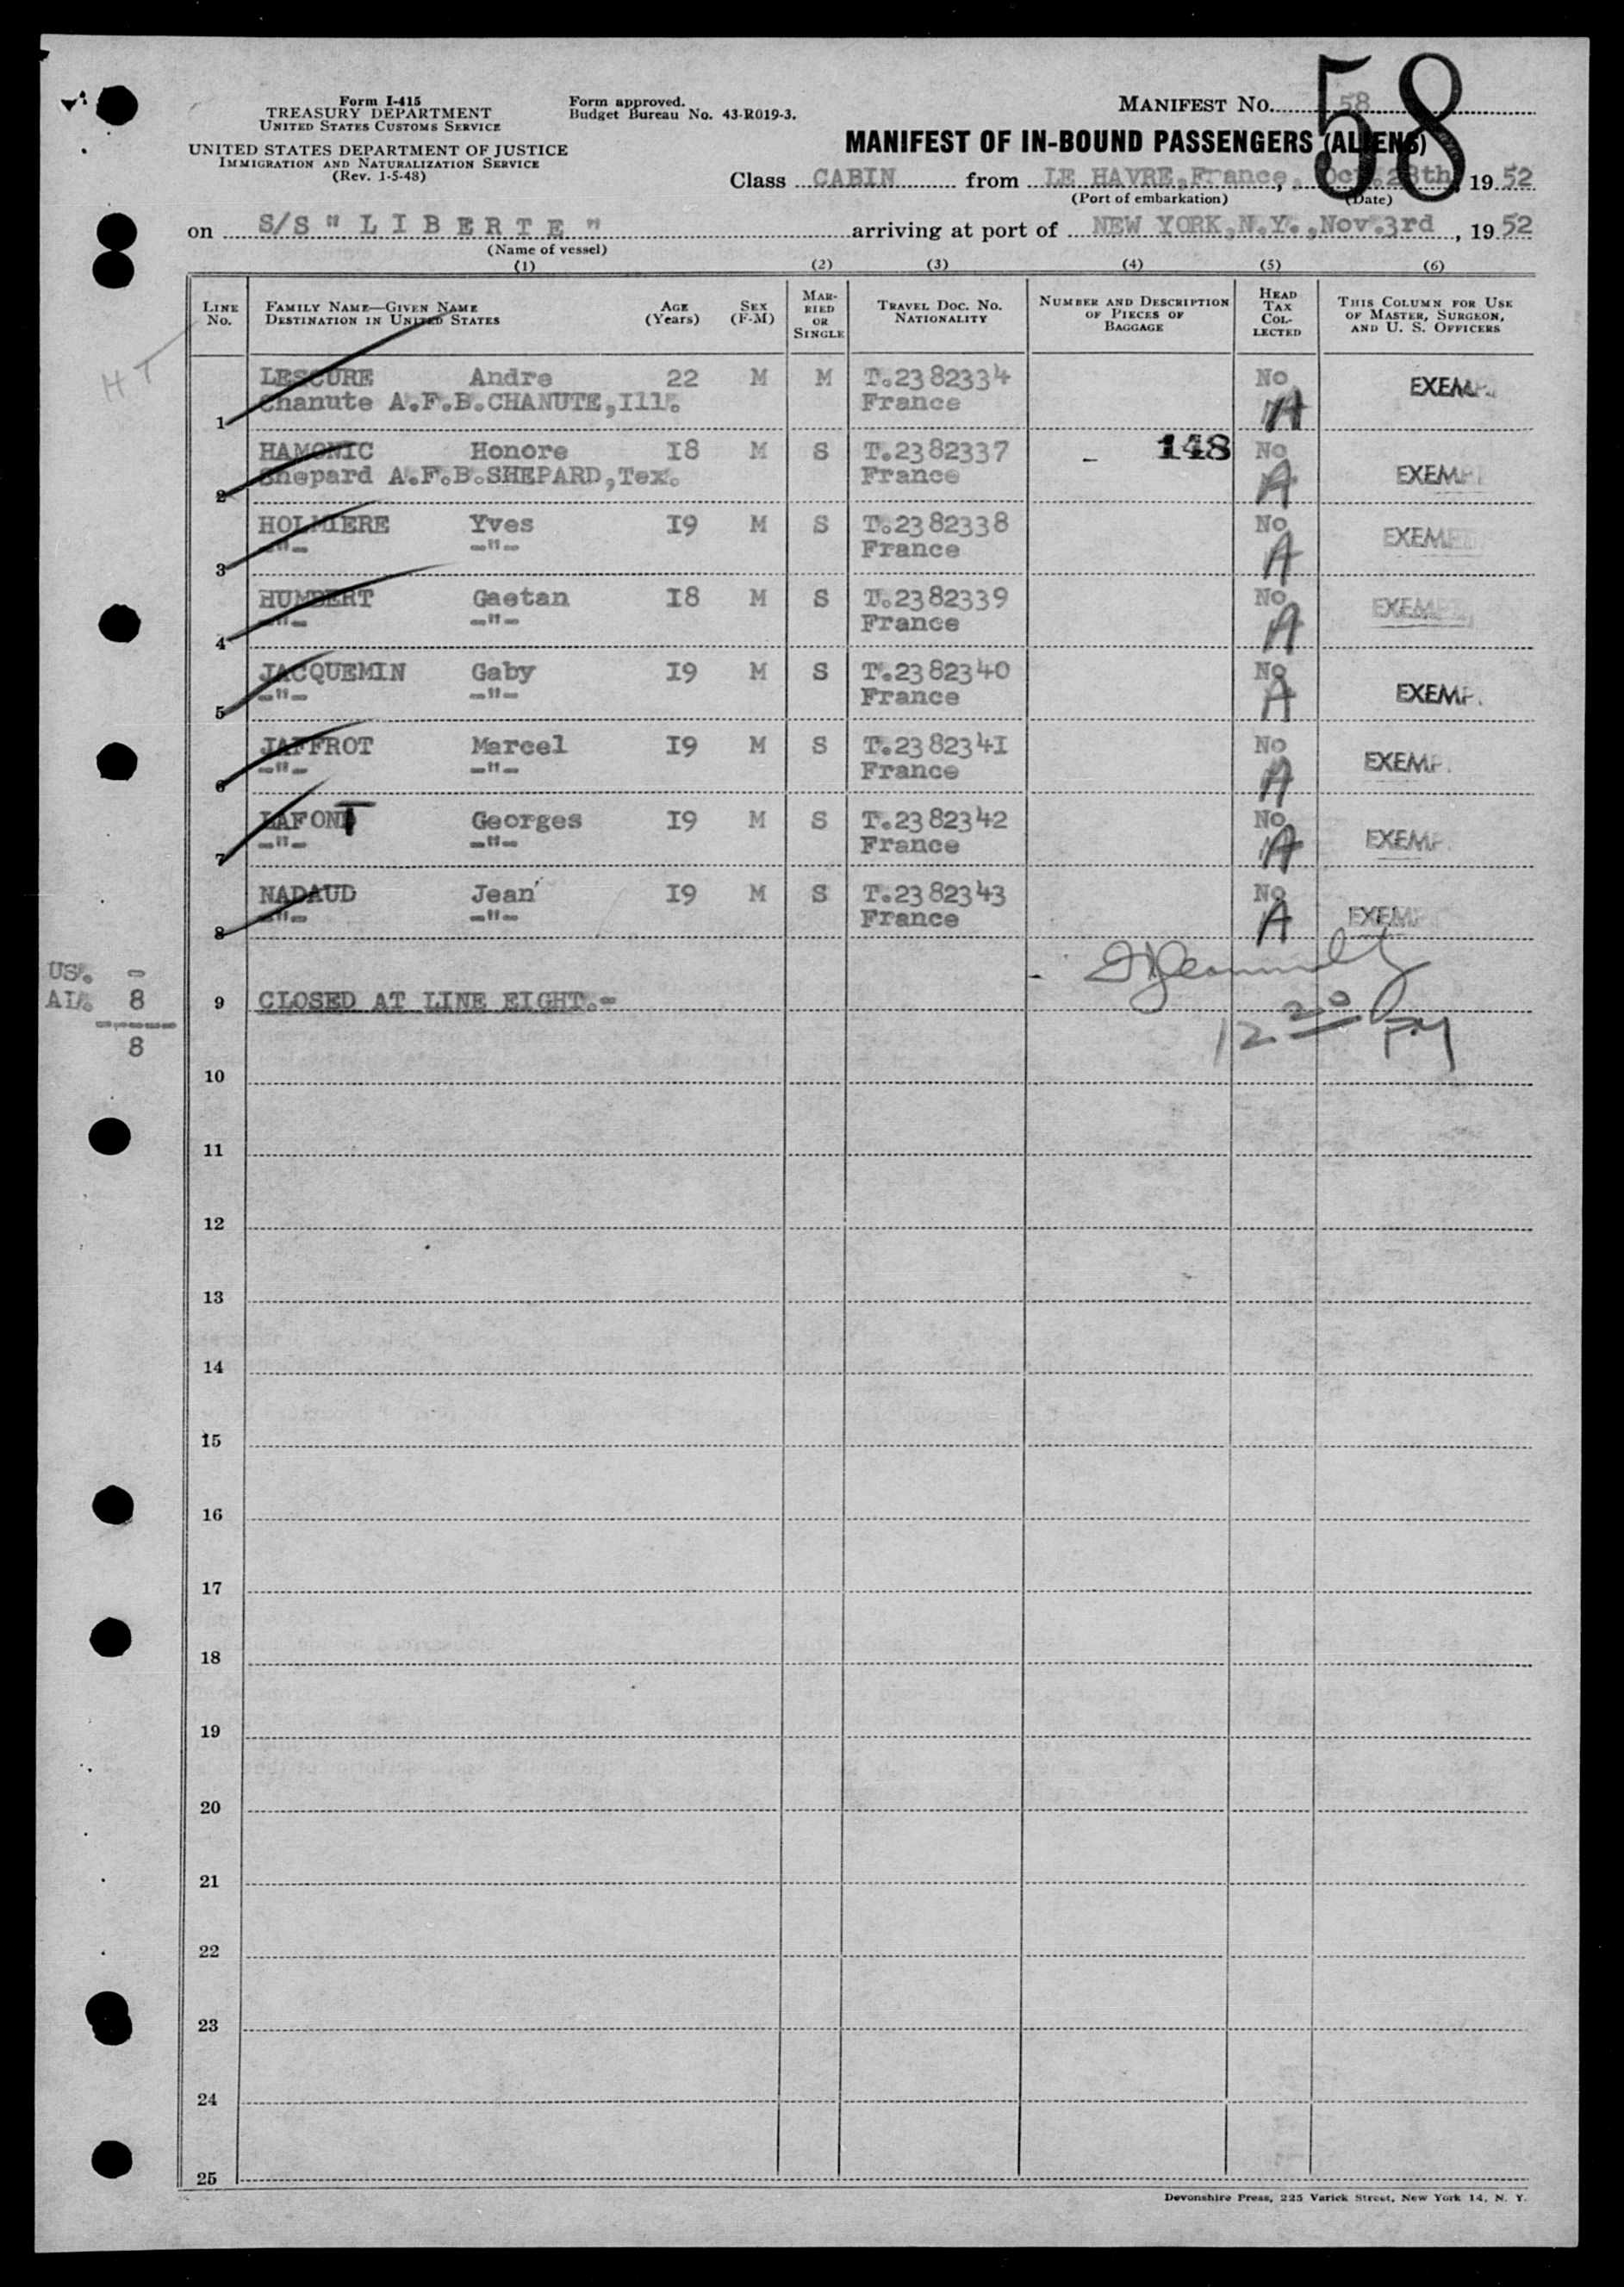 Form I-415
TREASURY DEPARTMENT
UNITED STATES CUSTOMS SERVICE
UNITED STATES DEPARTMENT OF JUSTICE
IMMIGRATION AND NATURALIZATION SERVICE
(Rev. 1-5-48)
Form approved.
Budget Bureau No. 43-R019-3.
MANIFEST No. 58
58
MANIFEST OF IN-BOUND PASSENGERS (ALIENS)
Class CABIN from LE HAVRE, France, Oct. 28th, 1952
(Port of embarkation) (Date)
on S/S " L I B E R T E " arriving at port of NEW YORK, N.Y., Nov. 3rd, 1952
(Name of vessel)
(1) (2) (3) (4) (5) (6)
LINE No. FAMILY NAME—GIVEN NAME DESTINATION IN UNITED STATES AGE (Years) SEX (F-M) MARRIED OR SINGLE TRAVEL DOC. NO. NATIONALITY NUMBER AND DESCRIPTION OF PIECES OF BAGGAGE HEAD TAX COLLECTED THIS COLUMN FOR USE OF MASTER, SURGEON, AND U. S. OFFICERS
HT
LESCURE Andre 22 M M T.2382334 No EXEMP.
1 Chanute A.F.B. CHANUTE, Ill. France A
HAMONIC Honore I8 M S T.2382337 – 148 No EXEMP
2 Shepard A.F.B. SHEPARD, Tex. France A
HOLMIERE Yves I9 M S T.2382338 No EXEMP
3 -"- -"- France A
HUMBERT Gaetan I8 M S T.2382339 No EXEMP
4 -"- -"- France A
JACQUEMIN Gaby I9 M S T.2382340 No EXEMP.
5 -"- -"- France A
JAFFROT Marcel I9 M S T.238234I No EXEMP.
6 -"- -"- France A
LAFONT Georges I9 M S T.2382342 No EXEMP.
7 -"- -"- France A
NADAUD Jean I9 M S T.2382343 No EXEMP
8 -"- -"- France A
US. -
AL. 8
8
9 CLOSED AT LINE EIGHT.-
12 20 PM
10
11
12
13
14
15
16
17
18
19
20
21
22
23
24
25
Devonshire Press, 225 Varick Street, New York 14, N. Y.